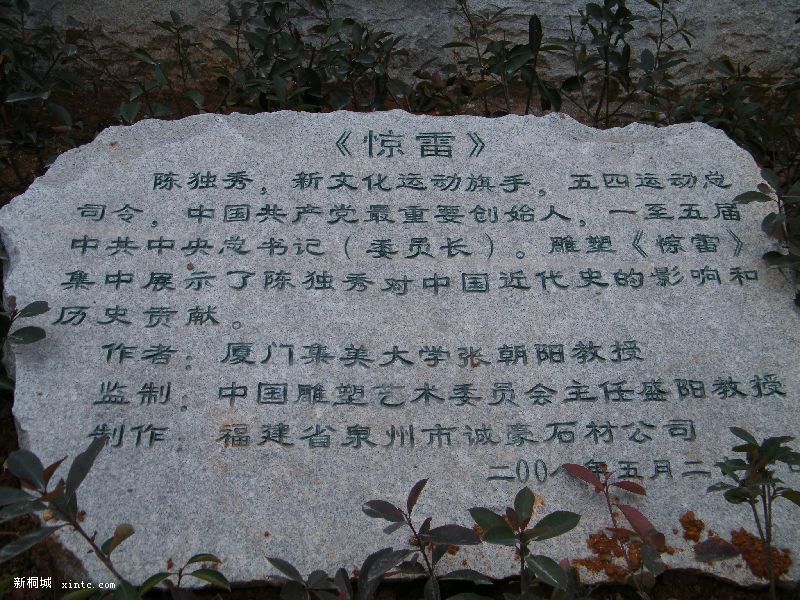 《惊雷》
陈独秀，新文化运动旗手，五四运动总
司令，中国共产党最重要创始人，一至五届
中共中央总书记（委员长）。雕塑《惊雷》
集中展示了陈独秀对中国近代史的影响和
历史贡献。
作者：厦门集美大学张朝阳教授
监制：中国雕塑艺术委员会主任盛阳教授
制作：福建省泉州市诚豪石材公司
二00八年五月二
新桐城 xintc.com